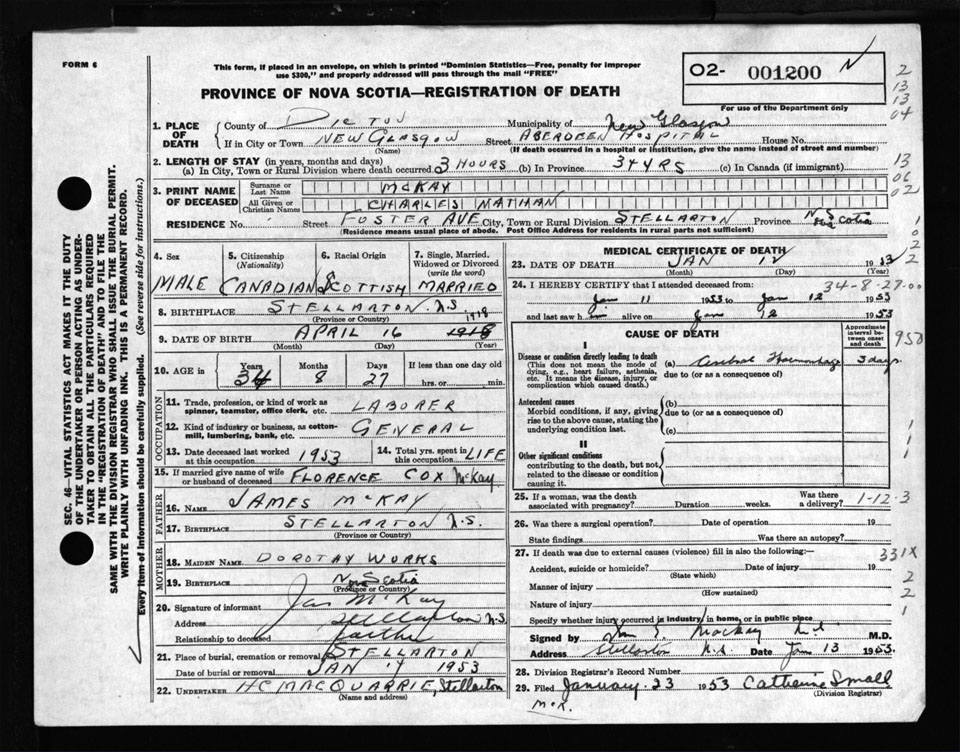 FORM 6
This form, if placed in an envelope, on which is printed "Dominion Statistics—Free, penalty for improper
use $300," and properly addressed will pass through the mail "FREE"
PROVINCE OF NOVA SCOTIA—REGISTRATION OF DEATH
O2- 001200 N
For use of the Department only
2
13
13
04
1. PLACE OF DEATH
County of PICTOU Municipality of New Glasgow
If in City or Town NEW GLASGOW Street ABERDEEN HOSPITAL House No.
(Name) (If death occurred in a hospital or institution, give the name instead of street and number)
2. LENGTH OF STAY (in years, months and days)
(a) In City, Town or Rural Division where death occurred 3 HOURS (b) In Province 34 YRS (c) In Canada (if immigrant)
13
06
02
3. PRINT NAME OF DECEASED
Surname or Last Name MCKAY
All Given or Christian Names CHARLES NATHAN
RESIDENCE No. Street FOSTER AVE City, Town or Rural Division STELLARTON Province N.S. Scotia
(Residence means usual place of abode. Post Office Address for residents in rural parts not sufficient)
1
0
2
2
4. Sex MALE
5. Citizenship (Nationality) CANADIAN
6. Racial Origin SCOTTISH
7. Single, Married, Widowed or Divorced (write the word) MARRIED
8. BIRTHPLACE STELLARTON N.S.
(Province or Country)
9. DATE OF BIRTH APRIL 16 1918 1918
(Month) (Day) (Year)
10. AGE in Years 34 Months 8 Days 27 If less than one day old hrs. or min.
OCCUPATION
11. Trade, profession, or kind of work as spinner, teamster, office clerk, etc. LABORER
12. Kind of industry or business, as cotton-mill, lumbering, bank, etc. GENERAL
13. Date deceased last worked at this occupation 1953
14. Total yrs. spent in this occupation LIFE
15. If married give name of wife or husband of deceased FLORENCE COX McKay
FATHER
16. NAME JAMES MCKAY
17. BIRTHPLACE STELLARTON N.S.
(Province or Country)
MOTHER
18. MAIDEN NAME DOROTHY WORKS
19. BIRTHPLACE Nova Scotia
(Province or Country)
20. Signature of informant Jas McKay
Address Stellarton N.S.
Relationship to deceased father
21. Place of burial, cremation or removal STELLARTON
Date of burial or removal JAN 14 1953
22. UNDERTAKER H C MACQUARRIE, Stellarton
(Name and address)
MEDICAL CERTIFICATE OF DEATH
23. DATE OF DEATH JAN 12 1953
(Month) (Day)
24. I HEREBY CERTIFY that I attended deceased from: 34-8-27-00
Jan 11 1953 to Jan 12 1953
and last saw him alive on Jan 12 1953
CAUSE OF DEATH
Approximate interval between onset and death
950
I
Disease or condition directly leading to death
(This does not mean the mode of dying, e.g., heart failure, asthenia, etc. It means the disease, injury, or complication which caused death.)
(a) Cerebral Haemorrhage 3 days
due to (or as a consequence of)
Antecedent causes
Morbid conditions, if any, giving rise to the above cause, stating the underlying condition last.
(b)
due to (or as a consequence of)
(c)
II
Other significant conditions
contributing to the death, but not related to the disease or condition causing it.
1
1
25. If a woman, was the death associated with pregnancy? Duration weeks. Was there a delivery? 1-12-3
26. Was there a surgical operation? Date of operation 19
State findings Was there an autopsy?
27. If death was due to external causes (violence) fill in also the following:— 331X
Accident, suicide or homicide? Date of injury 19
(State which)
2
Manner of injury
(How sustained)
2
Nature of injury
1
Specify whether injury occurred in industry, in home, or in public place
Signed by Wm E. Mackay M.D. M.D.
Address Stellarton N.S. Date Jan 13 1953
28. Division Registrar's Record Number
29. Filed January 23 1953 Catherine Small
(Division Registrar)
McK.
SEC. 46—VITAL STATISTICS ACT MAKES IT THE DUTY
OF THE UNDERTAKER OR PERSON ACTING AS UNDER-
TAKER TO OBTAIN ALL THE PARTICULARS REQUIRED
IN THE "REGISTRATION OF DEATH" AND TO FILE THE
SAME WITH THE DIVISION REGISTRAR WHO SHALL ISSUE THE BURIAL PERMIT.
WRITE PLAINLY WITH UNFADING INK. THIS IS A PERMANENT RECORD.
Every item of information should be carefully supplied. (See reverse side for instructions.)